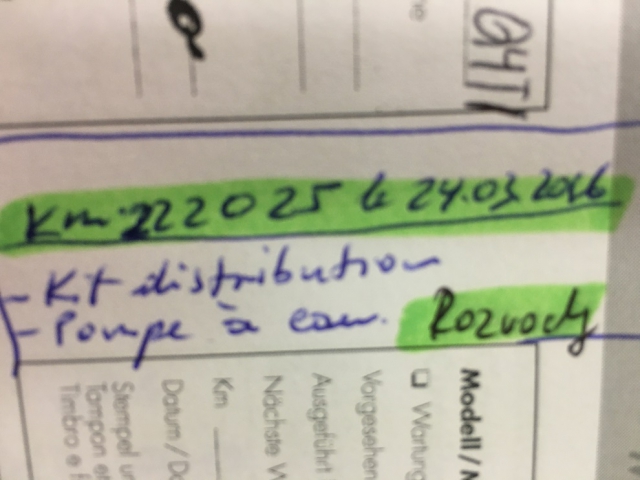 Km 222025 le 24.03.2016
- Kit distribution
- Pompe à eau.
Rozvody
Modell / M
Wartung
Vorgesehen
Ausgeführt
Nächste W
Km
Datum / Da
Stempel un
Tampon et
Timbro e f